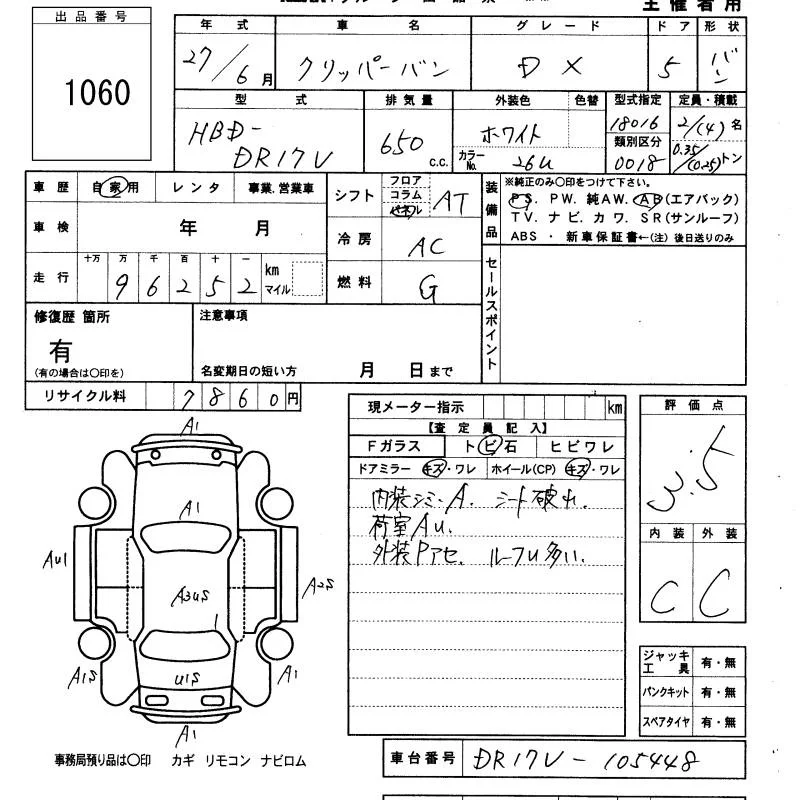 主催者用
出品番号
1060
年式 車名 グレード ドア 形状
27/6月 クリッパーバン DX 5 バン
型式 排気量 外装色 色替 型式指定 定員・積載
HBD-DR17V 650 c.c. ホワイト カラーNo. 26U 18016 類別区分 0018 2/(4)名 0.35/(0.25)トン
車歴 自家用 レンタ 事業.営業車
シフト フロア コラム パネル AT
装備品 ※純正のみ〇印をつけて下さい。
PS. PW. 純AW. AB(エアバック)
TV. ナビ. カワ. SR(サンルーフ)
ABS ・ 新車保証書←(注) 後日送りのみ
車検 年 月
冷房 AC
走行 十万 万 千 百 十 一 km マイル
9 6 2 5 2
燃料 G
セールスポイント
修復歴 箇所
有
(有の場合は〇印を)
注意事項
名変期日の短い方 月 日まで
リサイクル料 7860円
現メーター指示 km
【査定員記入】
Fガラス トビ石 ヒビワレ
ドアミラー キズ・ワレ ホイール(CP) キズ・ワレ
内装シミ・A. シート破れ.
荷室AU.
外装Pアセ. ルーフU多い.
評価点
3.5
内装 外装
C C
A1
A1
AU1
A3US
A2S
1
A1S
U1S
A1
A1
ジャッキ工具 有・無
パンクキット 有・無
スペアタイヤ 有・無
事務局預り品は〇印 カギ リモコン ナビロム
車台番号 DR17V-105448